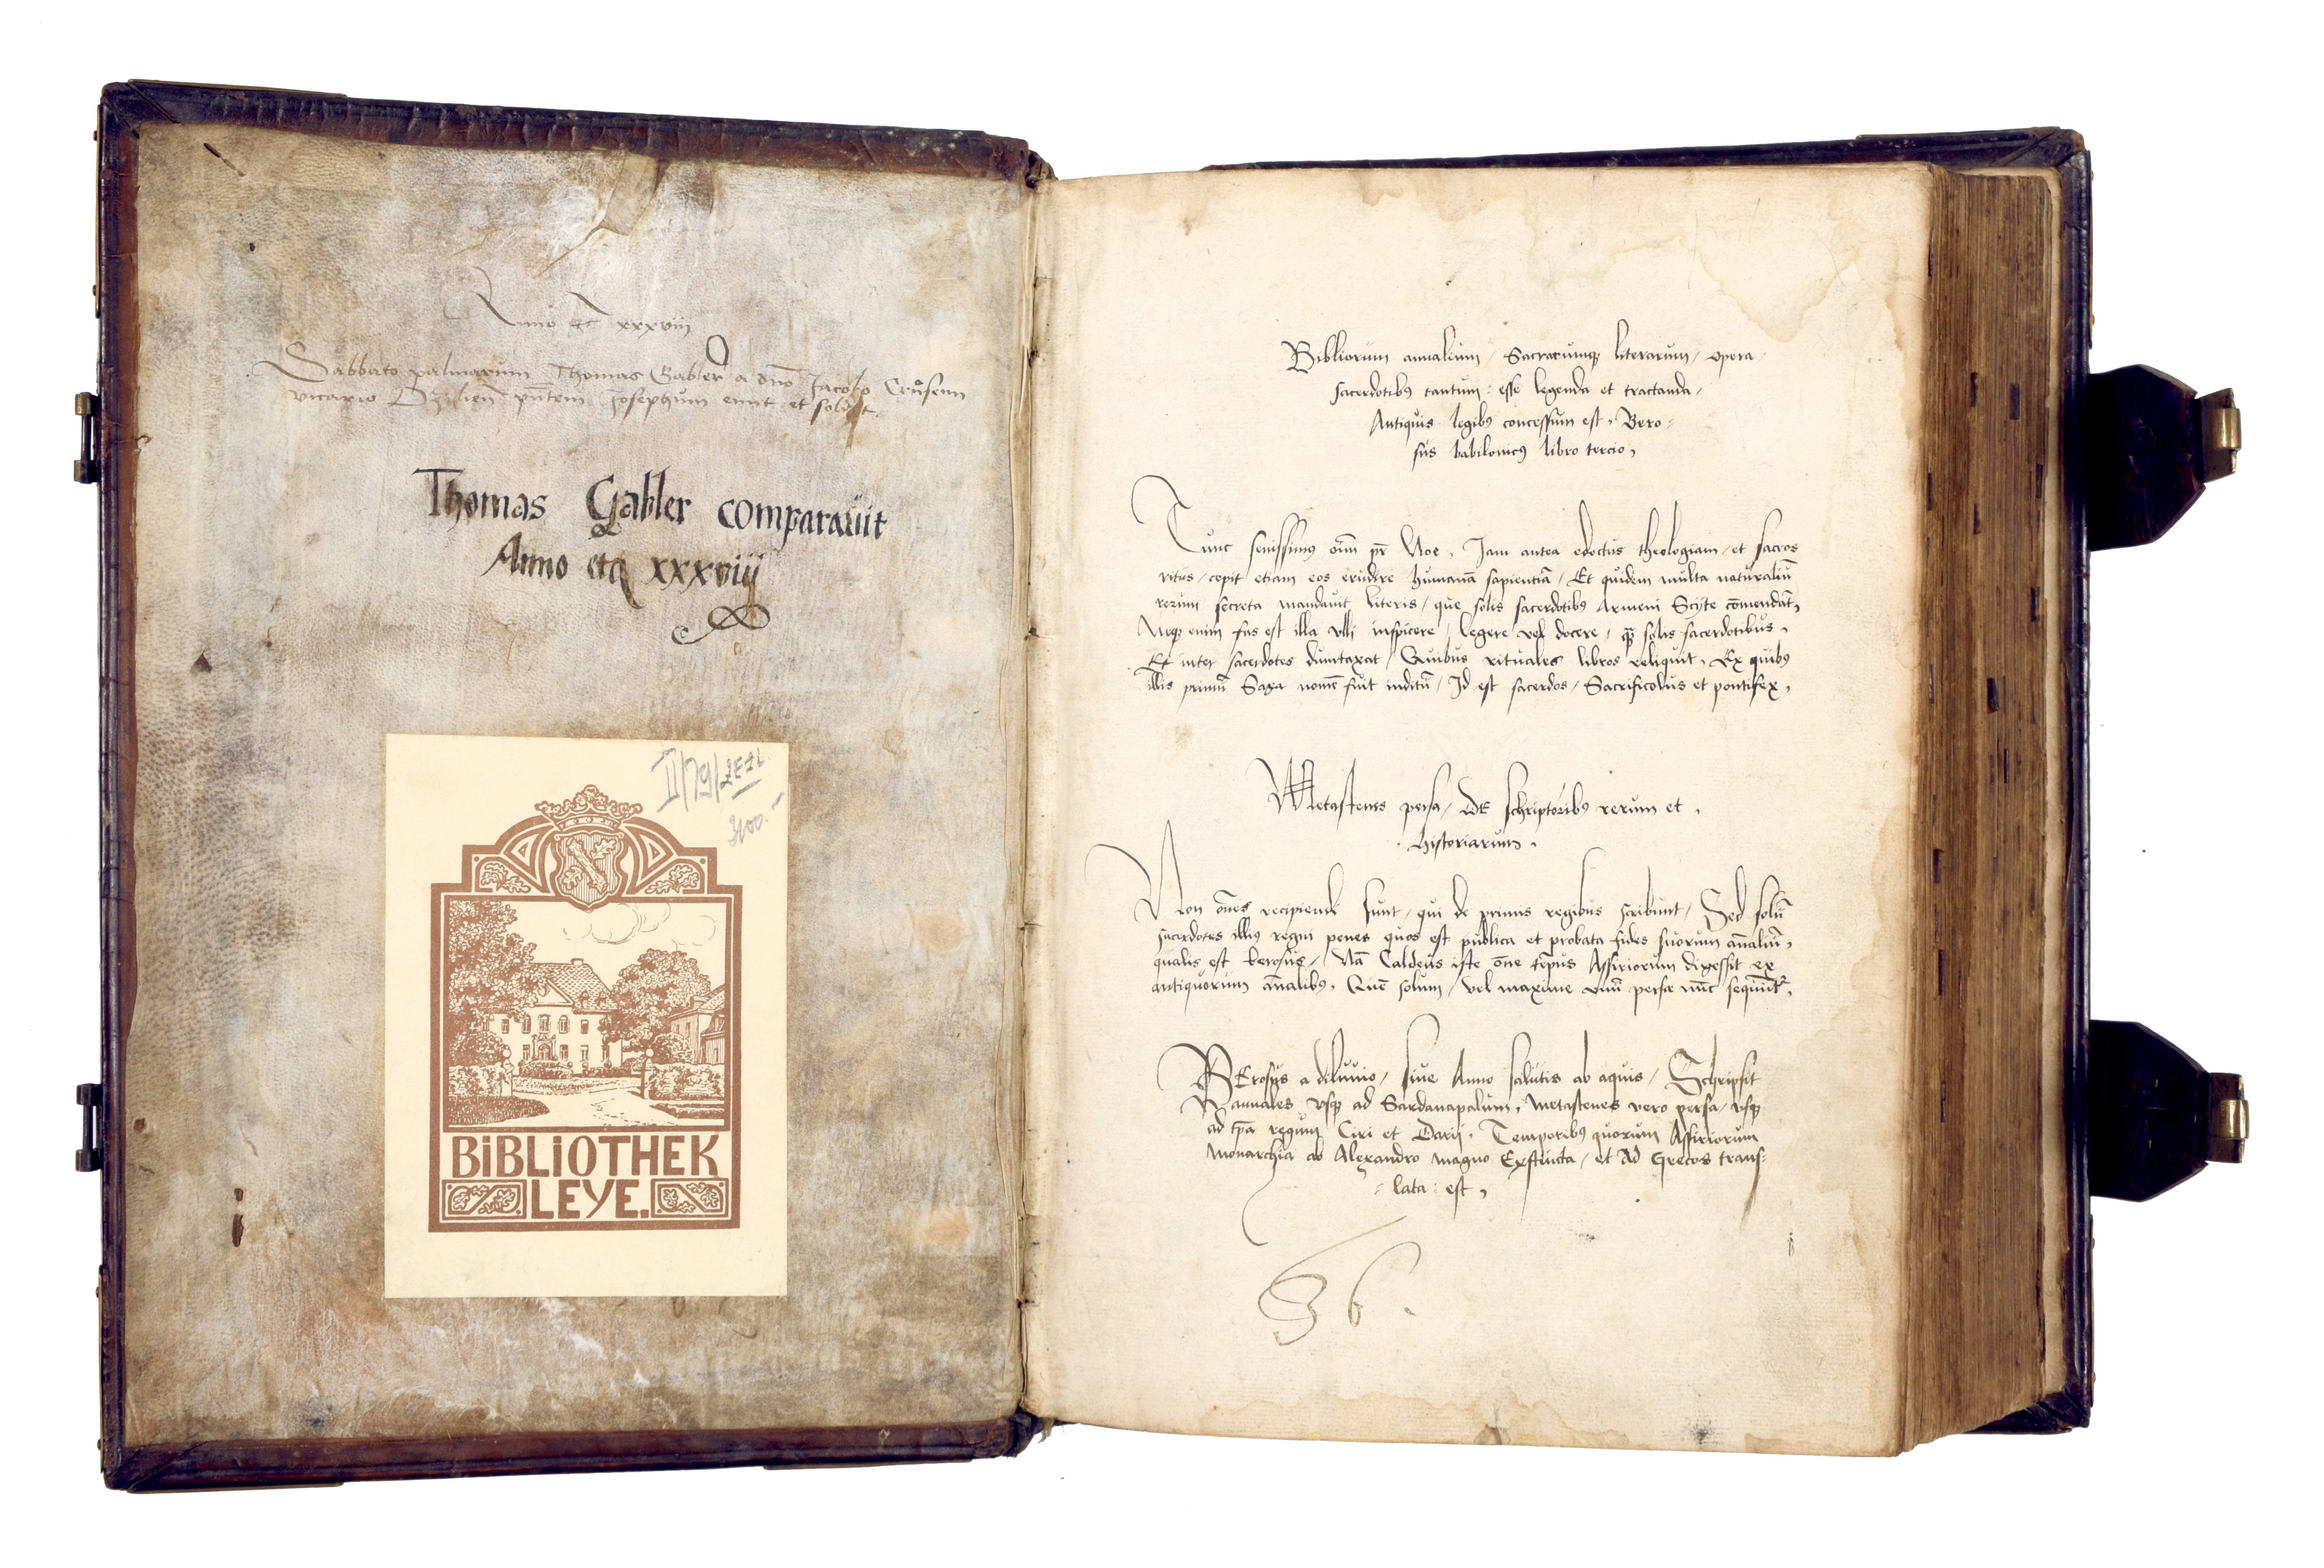 Anno etc xxxviij
Sabbato palmarum Thomas Gabler a dno Jacobo
vicario pntem Josephum emit et soluit.
Thomas Gabler comparauit
Anno etc xxxviij
II/79/
3400.-
BiBLiOTHEK
LEYE.
Bibliorum annalium / Sacrarumq literarum / opera /
sacerdotib9 tantum : esse legenda et tractanda /
Antiquis legib9 concessum est, Bero=
sus babilonic9 libro tercio,
Tunc senissim9 oim pr Noe, Jam antea edoctus theologiam / et sacros
ritus / cepit etiam eos erudire humanā sapientiā / Et quidem multa naturaliū
rerum secreta mandauit literis / que solis sacerdotib9 Armeni Scijte cōmendāt,
Neq enim fas est illa vlli inspicere / legere vel docere, q̄ solis sacerdotibus,
Et inter sacerdotes dumtaxat / Quibus rituales libros reliquit, Ex quib9
illis primū Saga nomē fuit inditū / Id est sacerdos / Sacrificolus et pontifex,
Metastenes persa / DE schriptorib9 rerum et,
. historiarum .
Non oēs recipiendi sunt / qui de primis regibus scribunt / Sed solū
sacerdotes illi9 regni penes quos est publica et probata fides suorum ānaliū,
qualis est berosus / Nā Caldeus iste ōne tēpus Assiriorum digessit ex
antiquorum ānalib9, Quē solum / vel maxime vnū perse nūc sequūt2,
BErosus a diluuio / siue Anno salutis ab aquis / Schripsit
annales vsq ad Sardanapalum, Metastenes vero persa / vsq
ad tpa regum Ciri et Darij, Temporib9 quorum Assiriorum
Monarchia ab Alexandro magno Exstincta / et ad Grecos trans=
= lata : est,
36.